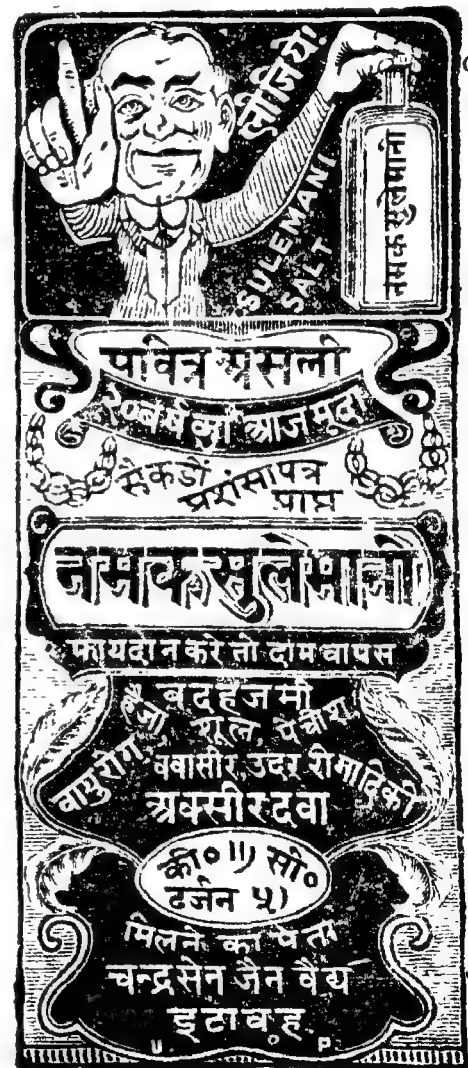 लीजिये
SULEMANI
SALT
नमक सुलेमानी
पवित्र असली
२० बर्ष का आजमूदा
सैकडों प्रशंसापत्र
प्राप्त
नमक सुलैमानी
फायदा न करे तो दाम वापस
बदहजमी
हैजा, शूल, पेचीश,
वायुरोग, ववासीर, उदर रोगादिकी
अक्सीर दवा
की० ॥) सी०
दर्जन ५)
मिलने का पता
चन्द्रसेन जैन वैद्य
इटावह
U. P.